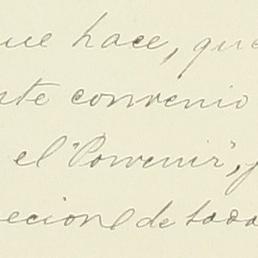 ue hace, que
nte convenio
el "Porvenir",
ecional de toda